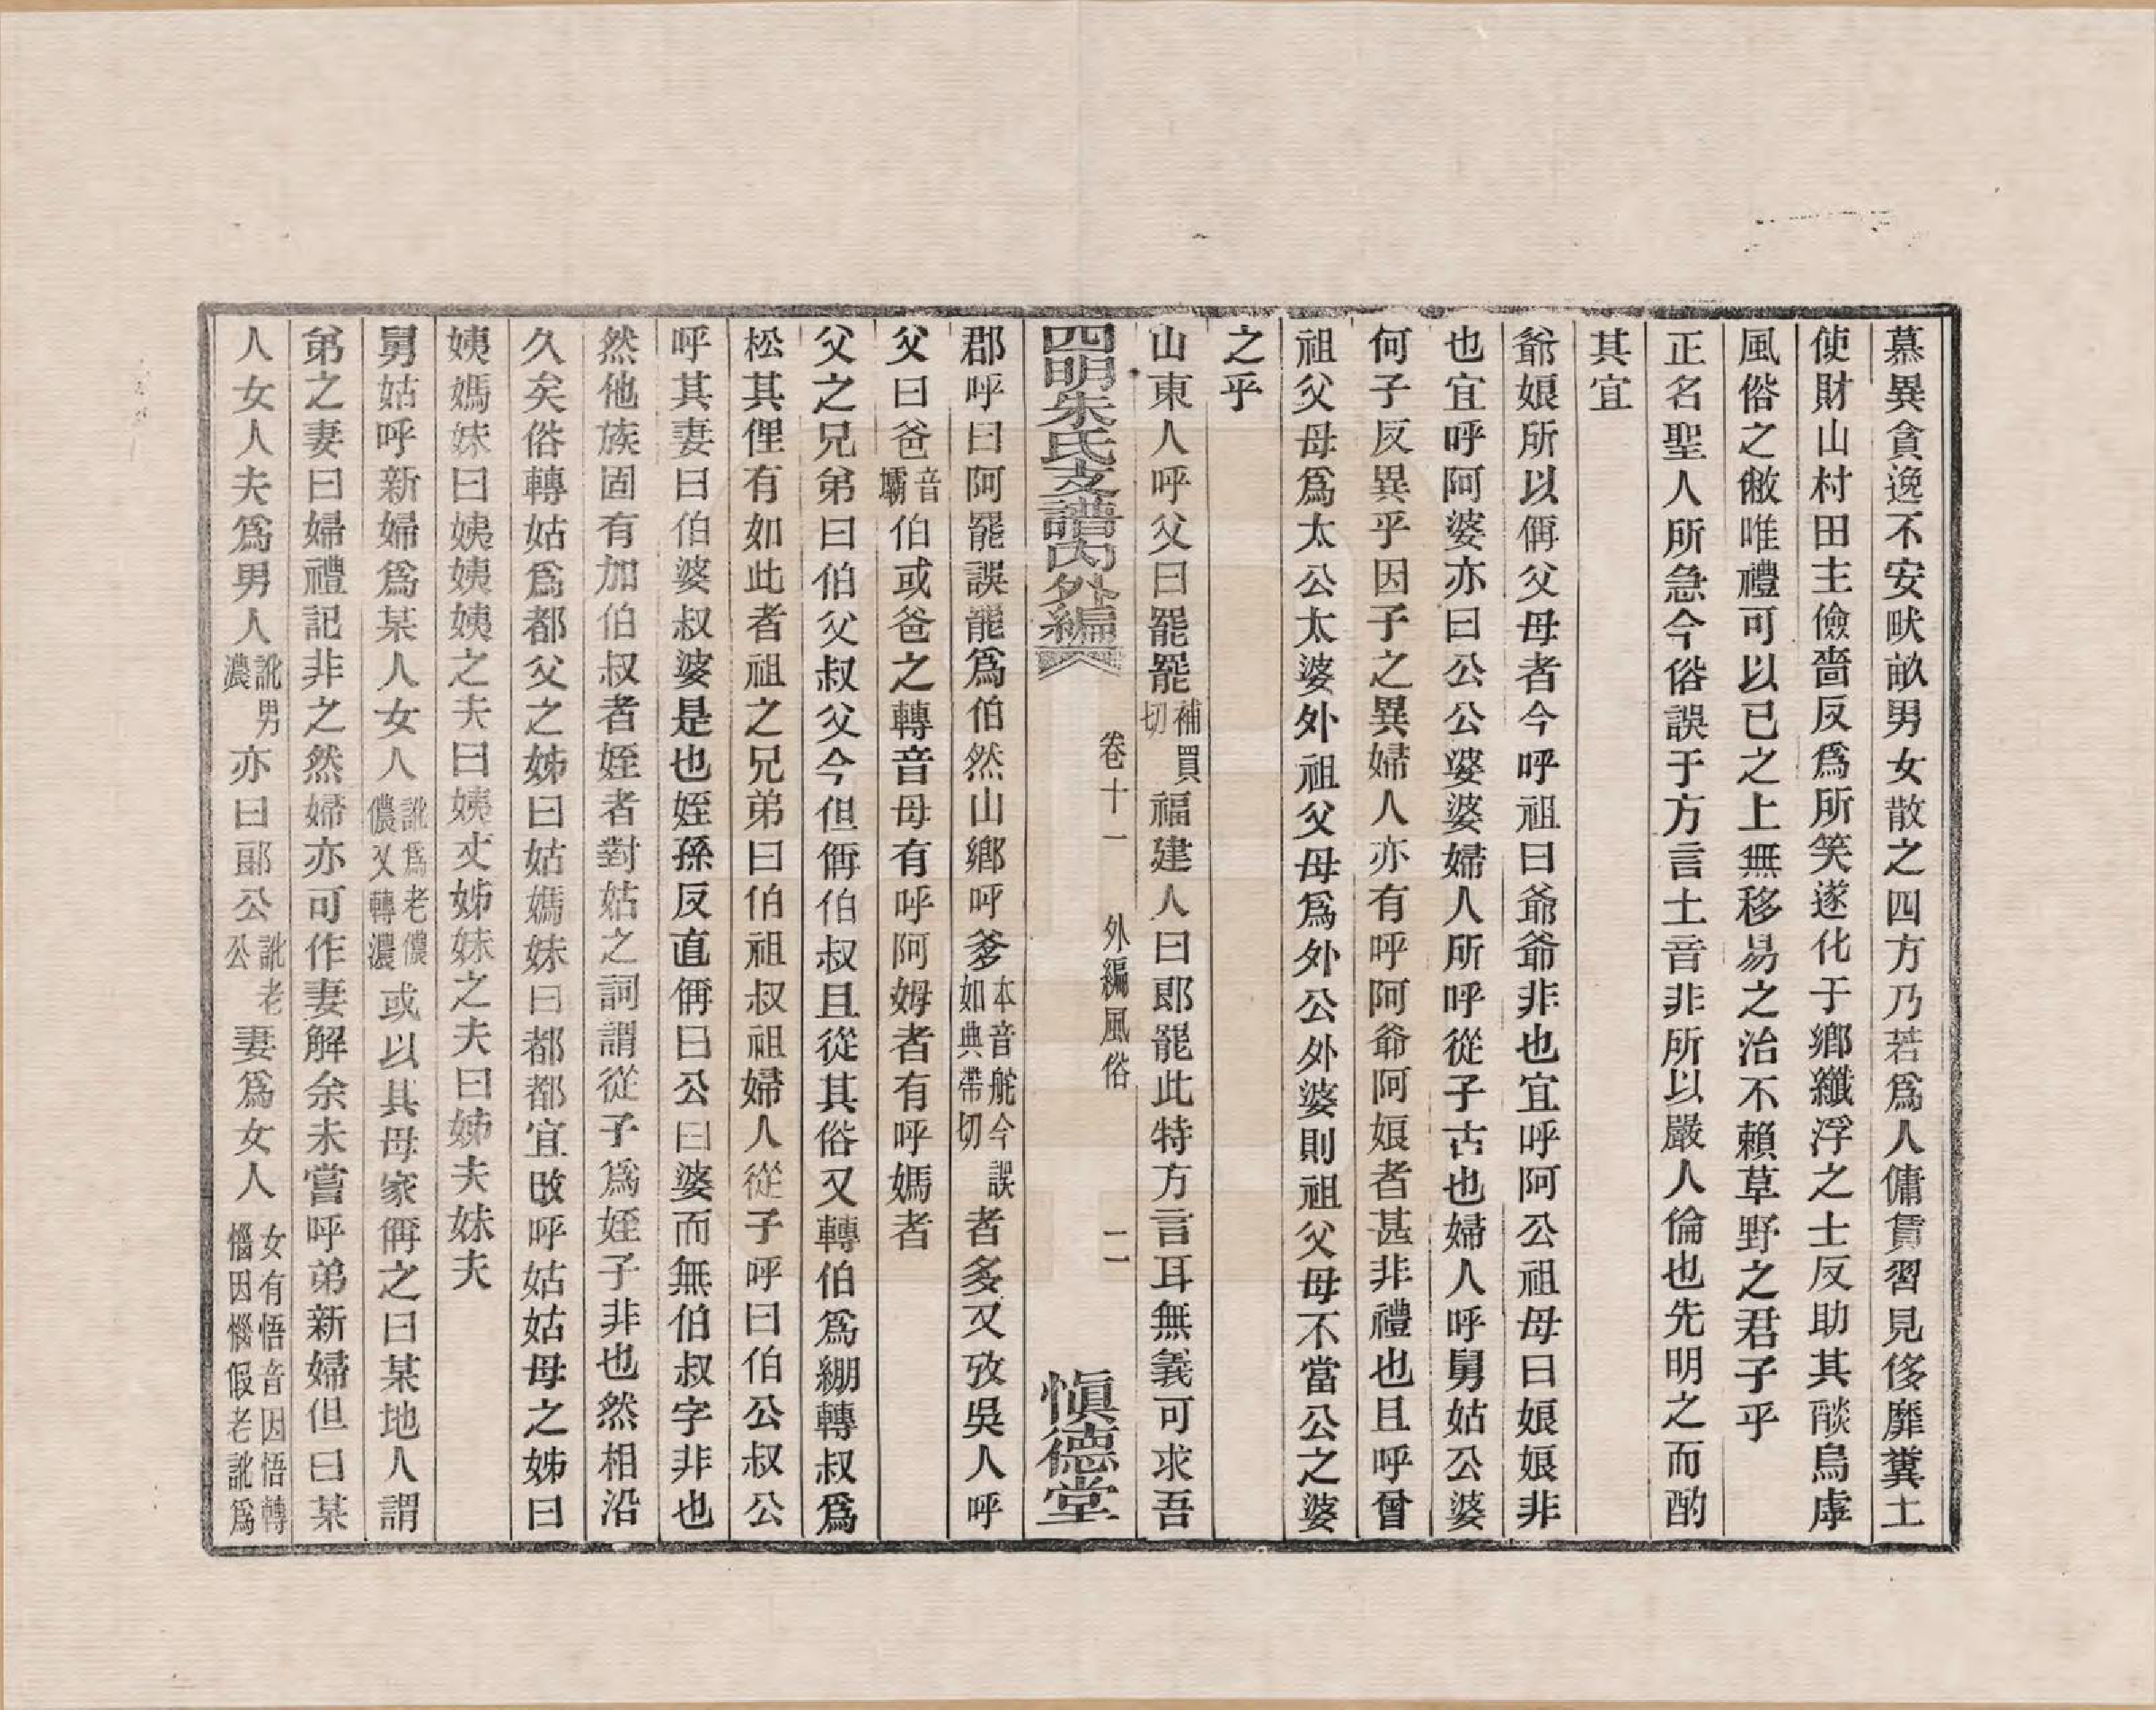 慕異貪逸不安畎畝男女散之四方乃若爲人傭賃習見侈靡糞土
使財山村田主儉嗇反爲所笑遂化于鄉纖浮之士反助其燄烏虖
風俗之敝唯禮可以已之上無移易之治不賴草野之君子乎
正名聖人所急今俗誤于方言土音非所以嚴人倫也先明之而酌
其宜
爺娘所以偁父母者今呼祖曰爺爺非也宜呼阿公祖母曰娘娘非
也宜呼阿婆亦曰公公婆婆婦人所呼從子古也婦人呼舅姑公婆
何子反異乎因子之異婦人亦有呼阿爺阿娘者甚非禮也且呼曾
祖父母爲太公太婆外祖父母爲外公外婆則祖父母不當公之婆
之乎
山東人呼父曰罷罷補買切福建人曰郎罷此特方言耳無義可求吾
四明朱氏支譜內外編 卷十一 外編風俗 二 愼德堂
郡呼曰阿罷誤罷爲伯然山鄉呼爹本音舵今誤如典帶切者多又攷吳人呼
父曰爸音壩伯或爸之轉音母有呼阿姆者有呼媽者
父之兄弟曰伯父叔父今但偁伯叔且從其俗又轉伯爲綳轉叔爲
松其俚有如此者祖之兄弟曰伯祖叔祖婦人從子呼曰伯公叔公
呼其妻曰伯婆叔婆是也姪孫反直偁曰公曰婆而無伯叔字非也
然他族固有加伯叔者姪者對姑之詞謂從子爲姪子非也然相沿
久矣俗轉姑爲都父之姊曰姑媽妹曰都都宜改呼姑姑母之姊曰
姨媽妹曰姨姨姨之夫曰姨丈姊妹之夫曰姊夫妹夫
舅姑呼新婦爲某人女人訛爲老儂儂又轉濃或以其母家偁之曰某地人謂
弟之妻曰婦禮記非之然婦亦可作妻解余未嘗呼弟新婦但曰某
人女人夫爲男人訛男濃亦曰郎公訛老公妻爲女人女有悟音因悟轉惱因惱假老訛爲